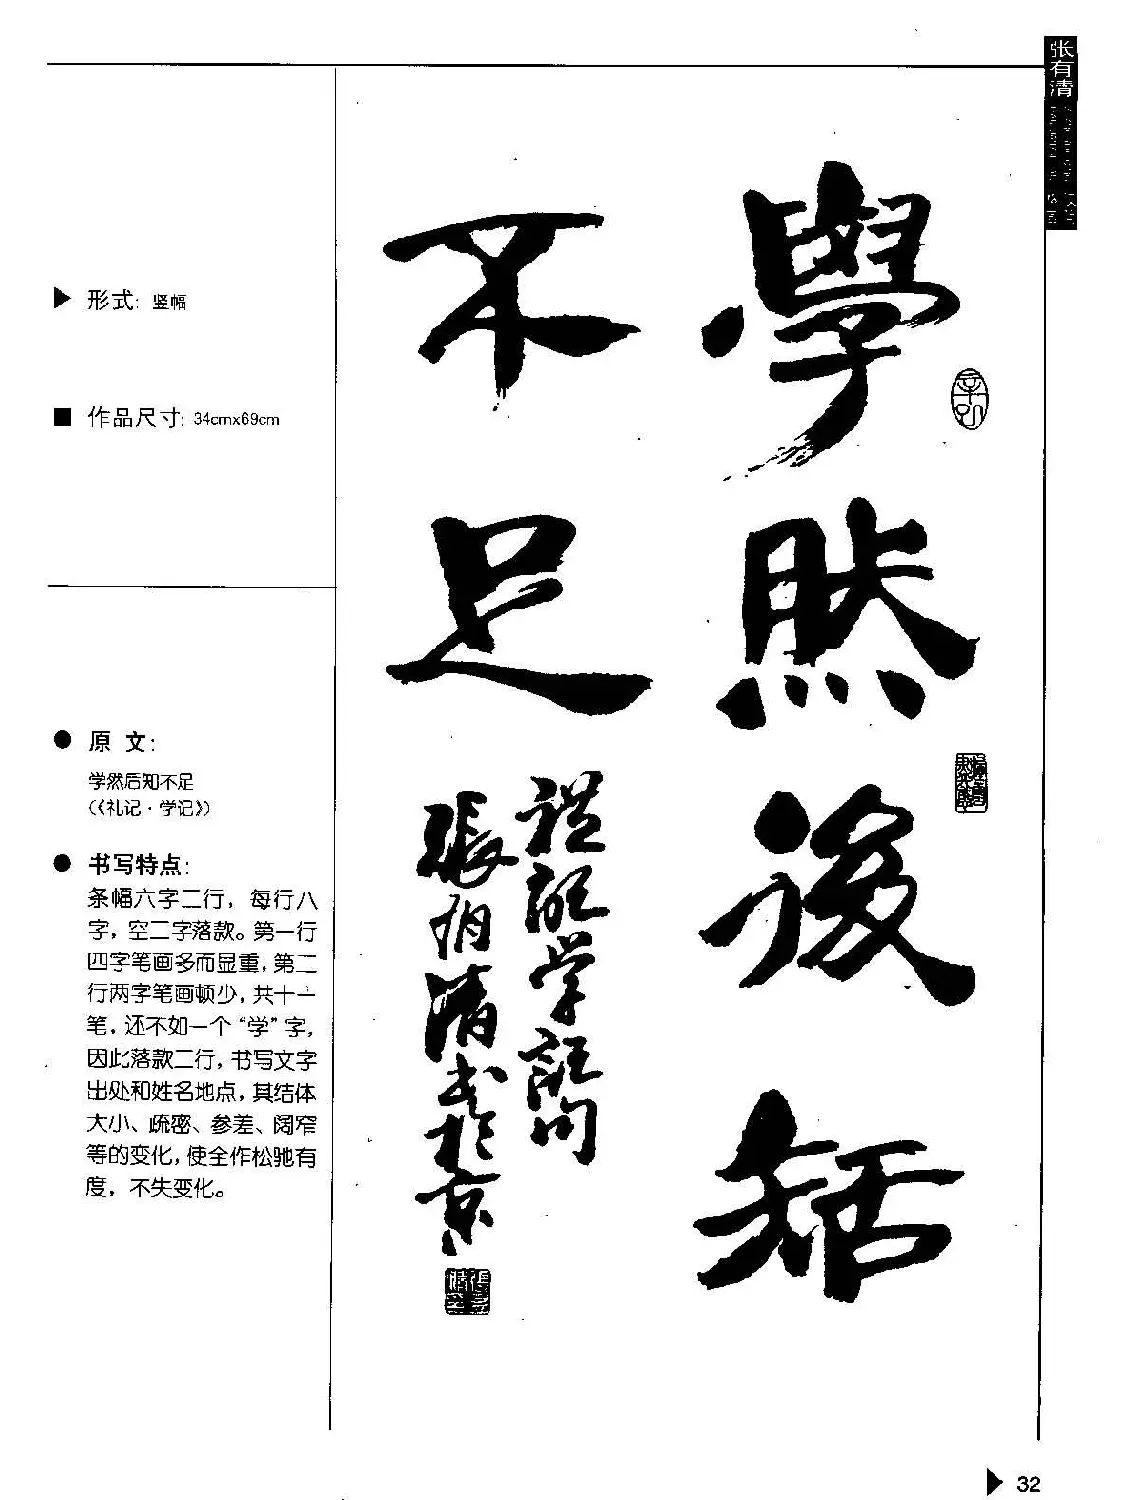 张有清
▶ 形式: 竖幅
■ 作品尺寸: 34cmx69cm
● 原 文:
学然后知不足
(《礼记·学记》)
● 书写特点:
条幅六字二行，每行八
字，空二字落款。第一行
四字笔画多而显重，第二
行两字笔画顿少，共十一
笔，还不如一个“学”字，
因此落款二行，书写文字
出处和姓名地点，其结体
大小、疏密、参差、阔窄
等的变化，使全作松驰有
度，不失变化。
學然後知
不足
禮記学記句
張有清書於京
▶ 32